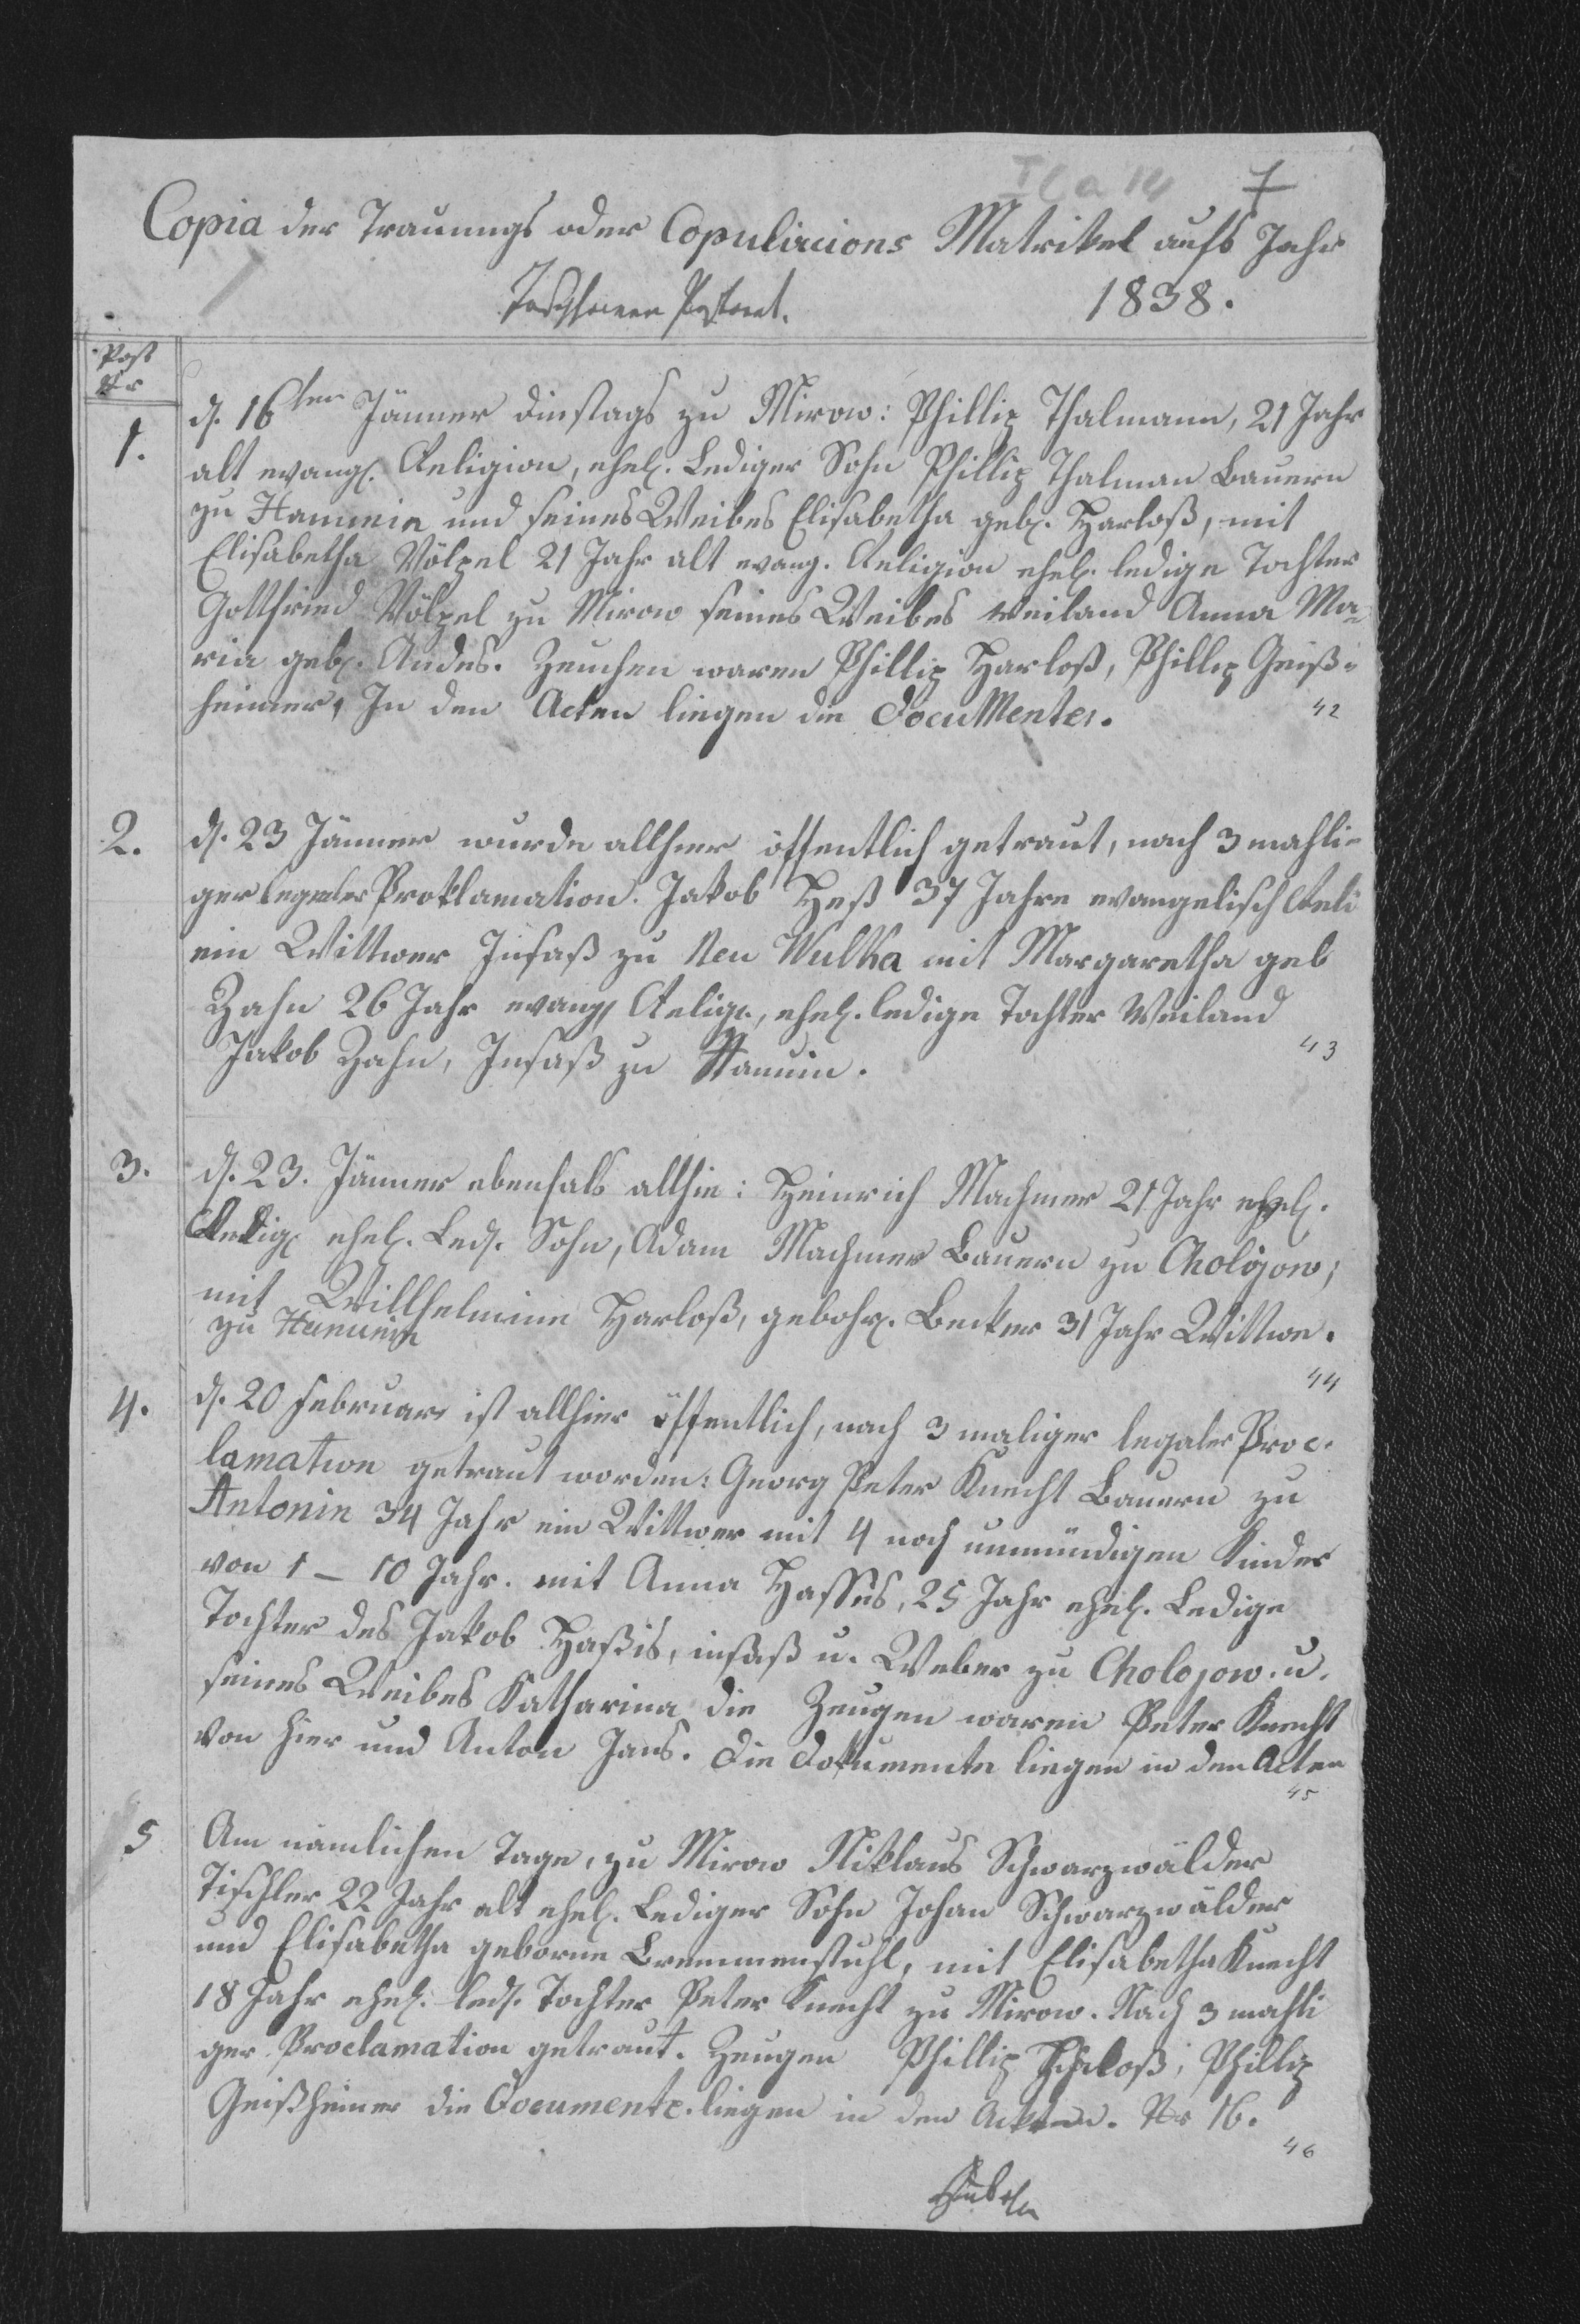 I C a 14 7
Copia der Trauungs oder Copulirions Matrikel aufs Jahr
1838.
Post
Nr
1. d. 16ten Jänner dinstags zu Mirow: Phillip Thalmann, 21 Jahr
alt evangl. Religion, ehel. Lediger Sohn Phillip Thalman Bauern
zu Hanunin und seines Weibes Elisabetha geb. Harloß, mit
Elisabetha Völpel 21 Jahr alt evang. Religion ehel. ledige Tochter
Gottfried Völpel zu Mirow seines Weibes weiland Anna Ma-
ria geb. Andes. Zeuchen waren Phillip Harloß, Phillip Geiß-
heimer, In den Acten liegen die Documentes. 42
2. d. 23 Jänner wurde allhier öffentlich getraut, nach 3 mahli-
ger legaler Proklamation. Jakob Heß 37 Jahre evangelisch Reli
ein Wittwer Insaß zu Neu Wulka mit Margaretha geb
Zahn 26 Jahr evang Relig., ehel. ledige Tochter Weiland
Jakob Zahn, Insaß zu Hanuin. 43
3. d. 23. Jänner ebenfals allhie: Heinrich Machmer 21 Jahr ehel.
Relig ehel. Led. Sohn, Adam Machmer Bauern zu Cholojow;
mit Willhelmine Harloß, gebohr. Becker 31 Jahr Wittwe.
zu Hanunin 44
4. d. 20 Februar ist allhier öffentlich, nach 3 maliger legaler Proc-
lamation getraut worden: Georg Peter Knecht Bauern zu
Antonin 34 Jahr ein Wittwer mit 4 noch unmündigen Kinder
von 1 – 10 Jahr. mit Anna Hassis, 25 Jahr ehel. Ledige
Tochter des Jakob Haßis, insaß u. Weber zu Cholojow. u.
seines Weibes Katharina die Zeugen waren Peter Knecht
von hier und Anton Jans. Die Dokumente liegen in den Acten
45
5 Am nämlichen Tage, zu Mirow Niklaus Schwarzwälder
Tischler 22 Jahr alt ehel. Lediger Sohn Johan Schwarzwälder
und Elisabetha geborne Bremmenstuhl, mit Elisabetha Knecht
18 Jahr ehel. led. Tochter Peter Knecht zu Mirow. Nach 3 mahli
ger Proclamation getraut. Zeugen Phillip Harloß, Phillip
Geißheimer die Documente liegen in den Ackten. Nr 16.
46